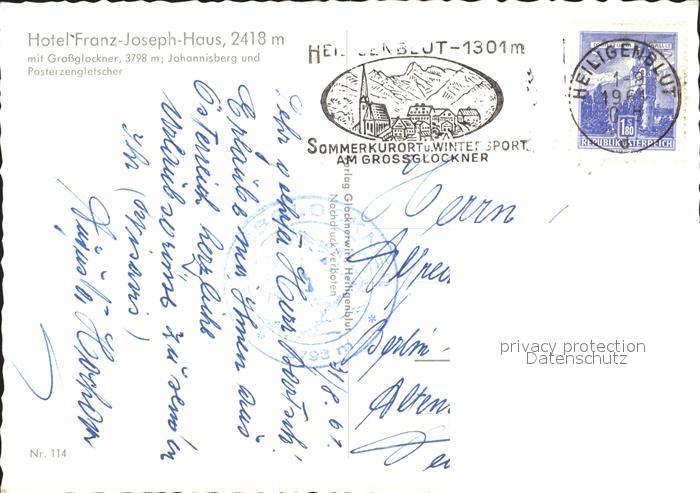 Hotel Franz-Joseph-Haus, 2418 m
mit Großglockner, 3798 m; Johannisberg und
Pasterzengletscher
HEILIGENBLUT-1301m
SOMMERKURORT u. WINTERSPORT
AM GROSSGLOCKNER
HEILIGENBLUT
1 80
REPUBLIK ÖSTERREICH
Verlag Glocknerwirt Heiligenblut
Nachdruck verboten
Sehr
Herr
Erlaube mir Ihnen aus
Österreich herzliche
Urlaubsgrüße zu senden
Ihr
Herrn
Alfred
Berlin
Alten
privacy protection
Datenschutz
Nr. 114